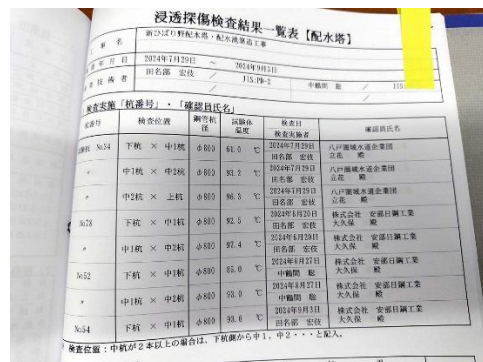 浸透探傷検査結果一覧表【配水塔】
工事名 新ひばり野配水塔・配水池築造工事
年月日 2024年7月29日 ～ 2024年9月3日
技術者 田名部 宏伎 / JIS:PD-2 中鶴間 聡 /
検査実施「杭番号」・「確認員氏名」
杭番号 検査位置 鋼管杭径 試験体温度 検査日 検査実施者 確認員氏名
No.34 下杭 × 中1杭 φ800 61.0 ℃ 2024年7月29日 田名部 宏伎 八戸圏域水道企業団 立花 殿
〃 中1杭 × 中2杭 φ800 93.2 ℃ 2024年7月29日 田名部 宏伎 八戸圏域水道企業団 立花 殿
〃 中2杭 × 上杭 φ800 96.3 ℃ 2024年7月29日 田名部 宏伎 八戸圏域水道企業団 立花 殿
No.78 下杭 × 中1杭 φ800 92.5 ℃ 2024年8月20日 田名部 宏伎 株式会社 安部日鋼工業 大久保 殿
〃 中1杭 × 中2杭 φ800 97.4 ℃ 田名部 宏伎 株式会社 安部日鋼工業 大久保 殿
No.52 下杭 × 中1杭 φ800 85.0 ℃ 2024年8月27日 中鶴間 聡 株式会社 安部日鋼工業 大久保 殿
〃 中1杭 × 中2杭 φ800 93.0 ℃ 2024年8月27日 中鶴間 聡 株式会社 安部日鋼工業 大久保 殿
No.54 下杭 × 中1杭 φ800 93.6 ℃ 2024年9月3日 田名部 宏伎 株式会社 安部日鋼工業 大久保 殿
検査位置：中杭が2本以上の場合は、下杭側から中1，中2・・・と記入。